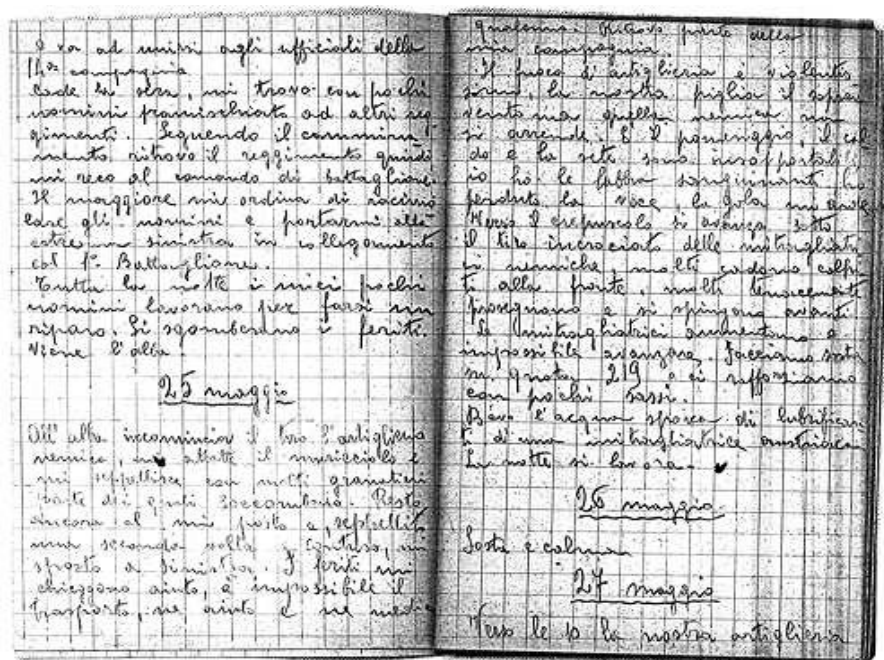 e va ad unirsi agli ufficiali della
11ª compagnia
Cade la sera, mi trovo con pochi
uomini frammischiato ad altri reg
gimenti. Seguendo il cammina
mento ritrovo il reggimento quindi
mi reco al comando di battaglione
Il maggiore mi ordina di raccimo
lare gli uomini e portarmi all'e
strema sinistra in collegamento
col 1º Battaglione.
Tutta la notte i miei pochi
uomini lavorano per farsi un
riparo. Si sgomberano i feriti.
Viene l'alba.
25 maggio
All'alba incomincia il tiro l'artiglieria
nemica, abbatte il muricciolo e
mi seppellisce con molti granatieri
parte dei quali soccombono. Resto
ancora al mio posto e, seppellito
una seconda volta e contuso, mi
sposto a sinistra. I feriti mi
chieggono aiuto, è impossibile il
trasporto, ne aiuto e ne medic
qualcuno. Ritrovo parte della
mia compagnia.
Il fuoco d'artiglieria è violentis
simo, la nostra piglia il soprav
vento ma quella nemica non
si arrende. È il pomeriggio, il cal
do e la sete sono insopportabili
io ho le labbra sanguinanti, ho
perduto la voce, la gola mi arde
Verso il crepuscolo si avanza sotto
il tiro incrociato delle mitragliatri
ci nemiche, molti cadono colpi
ti alla fronte, molti tenacemente
proseguono e si spingono avanti
Le mitragliatrici aumentano è
impossibile avanzare. Facciamo sosta
su quota 219 e ci rafforziamo
con pochi sassi.
Bevo l'acqua sporca di lubrifican
ti di una mitragliatrice austriaca
La notte si lavora.
26 maggio
Sosta e calma
27 maggio
Verso le 10 la nostra artiglieria